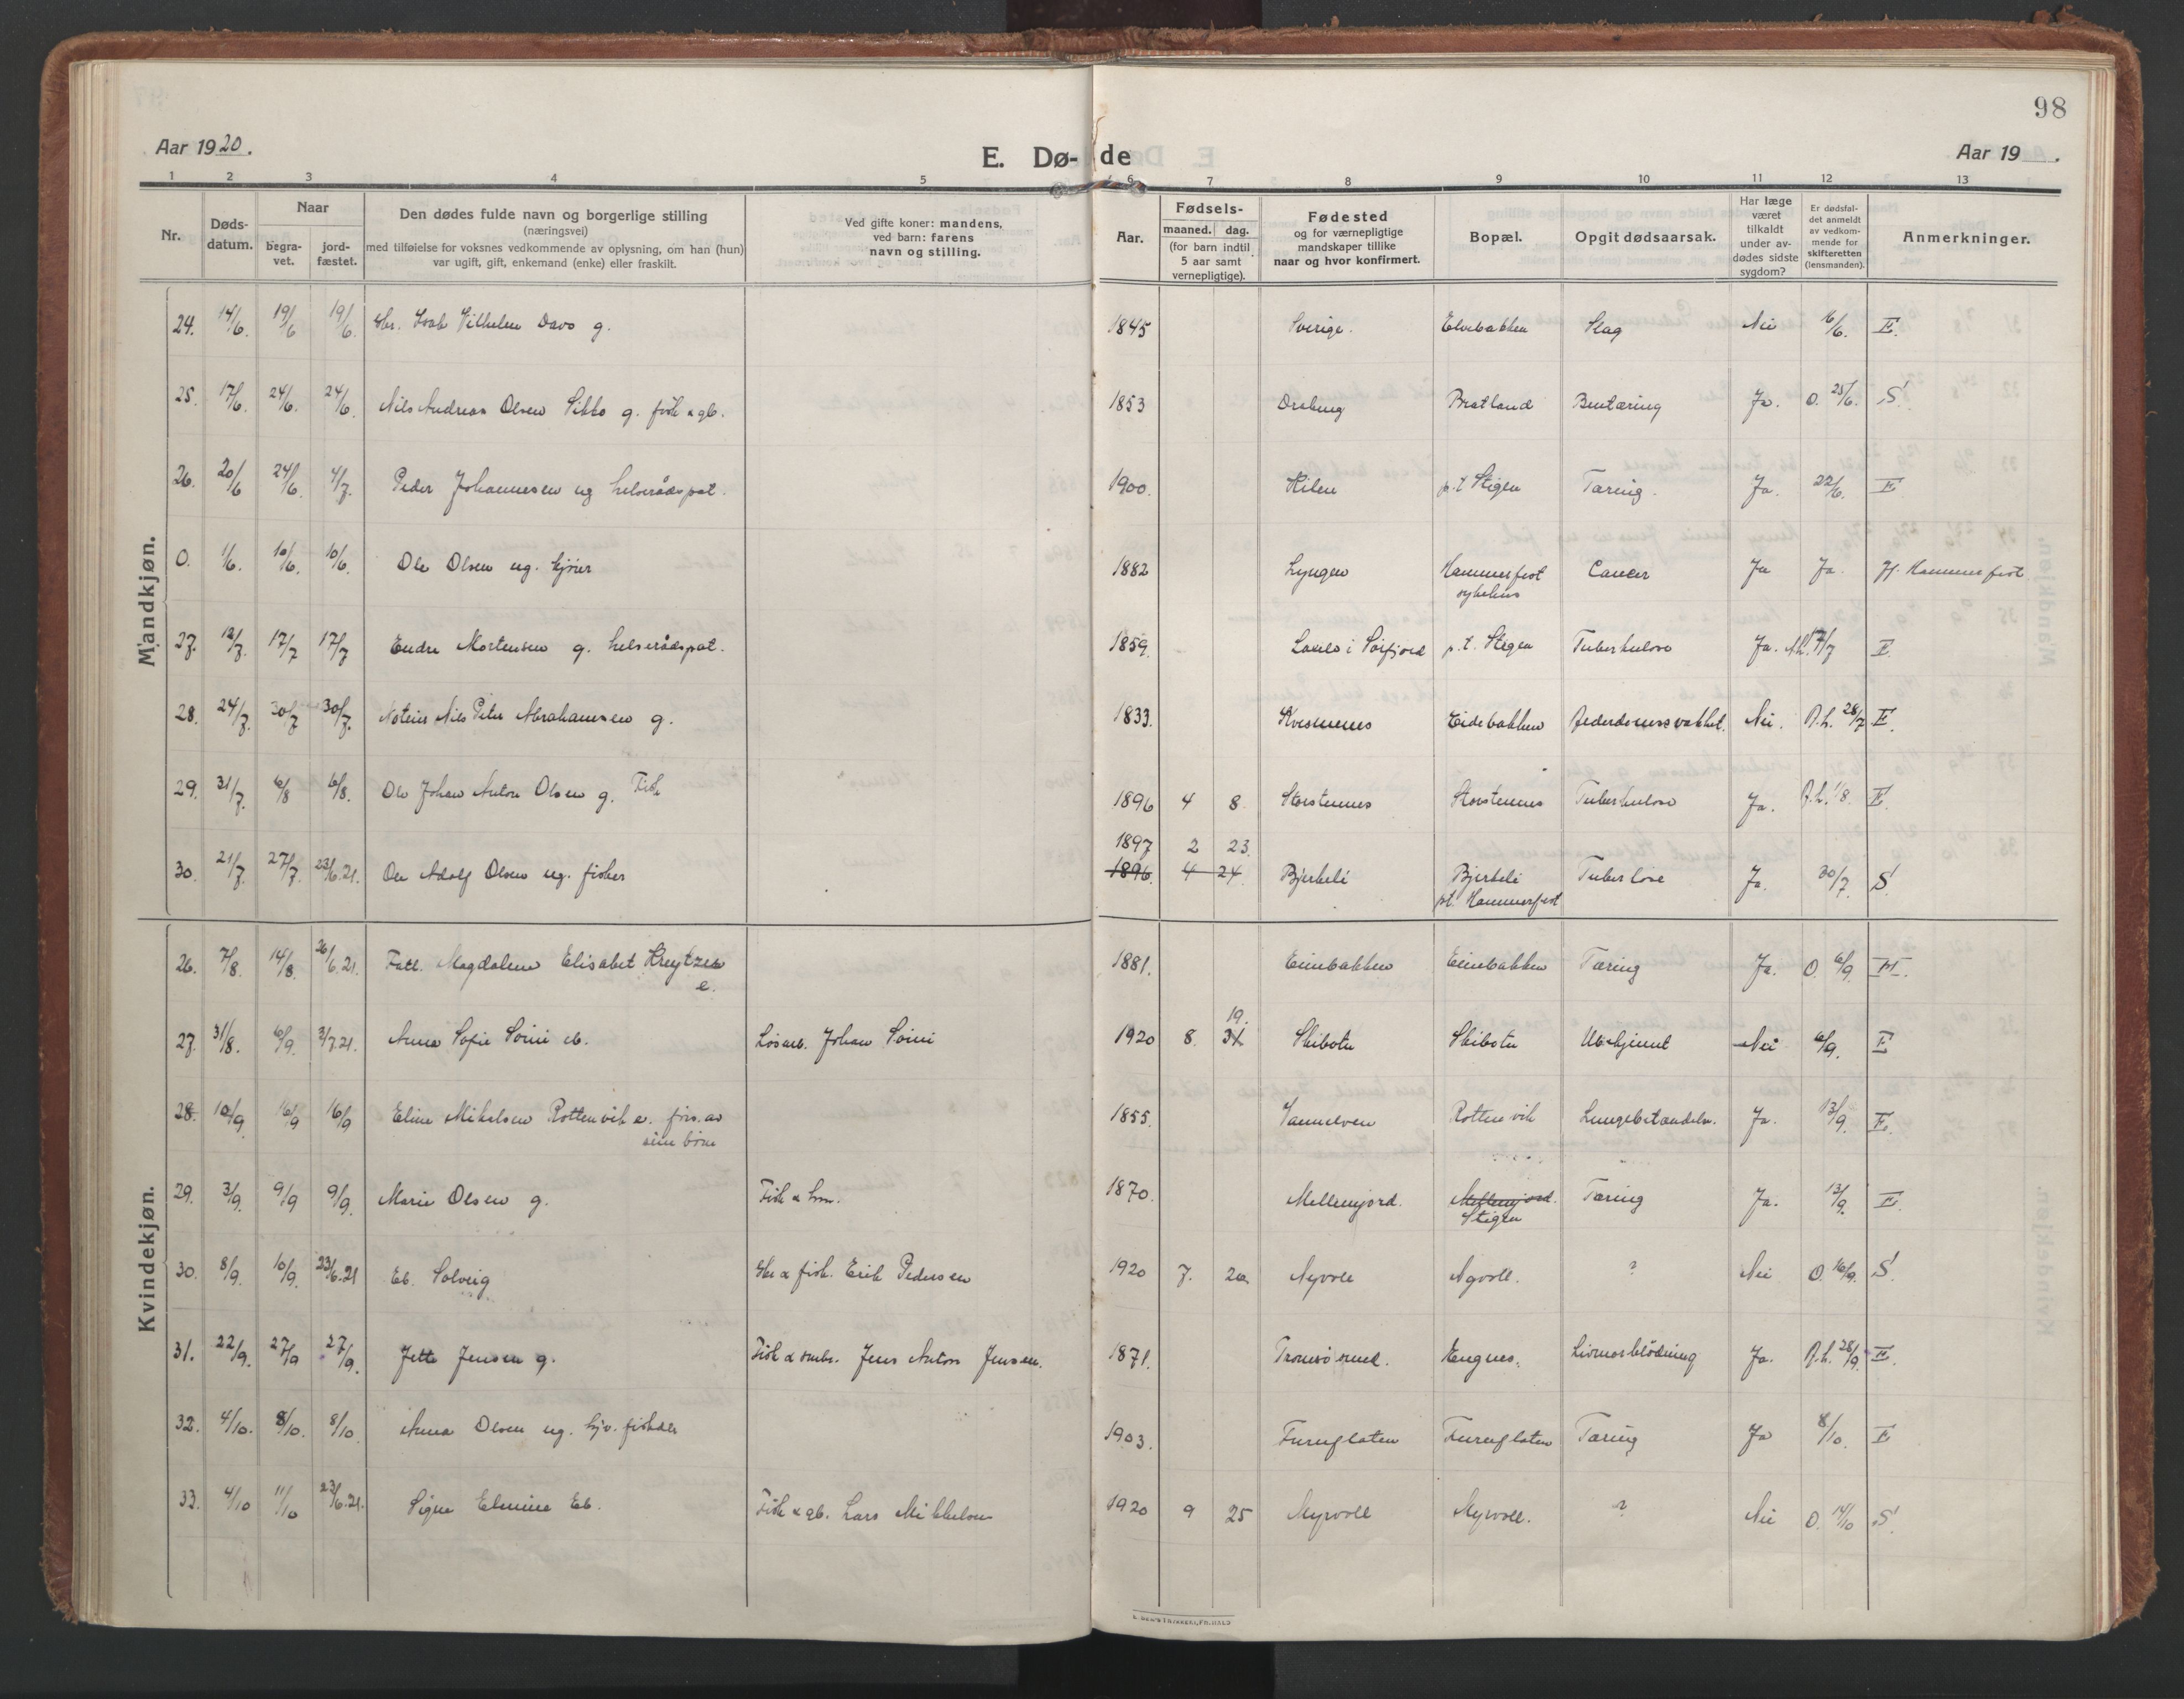 98
Aar 1920.
E. Dø- de
Aar 19 .
1 2 3 4 5 6 7 8 9 10 11 12 13
Nr.
Døds-
datum.
Naar
begra-
vet.
jord-
fæstet.
Den dødes fulde navn og borgerlige stilling
(næringsvei)
med tilføielse for voksnes vedkommende av oplysning, om han (hun)
var ugift, gift, enkemand (enke) eller fraskilt.
Ved gifte koner: mandens,
ved barn: farens
navn og stilling.
Aar.
Fødsels-
maaned. dag.
(for barn indtil
5 aar samt
vernepligtige).
Fødested
og for værnepligtige
mandskaper tillike
naar og hvor konfirmert.
Bopæl.
Opgit dødsaarsak.
Har læge
været
tilkaldt
under av-
dødes sidste
sygdom?
Er dødsfal-
det anmeldt
av vedkom-
mende for
skifteretten
(lensmanden).
Anmerkninger.
Mandkjøn.
24. 14/6. 19/6 19/6. Vilhelm g. 1845 Sverige. Elvebakken Slag Nei 16/6. E.
25. 17/6. 24/6. 24/6. Nils Andreas Olsen Sikko g. fisk & gb. 1853 Bratland Ja. O. 25/6. S.
26. 20/6 24/6. 4/7. Peder Johannesen ug helserådspat. 1900. Kilen p.t Stigen Tæring. Ja. 22/6. E
0. 1/6. 10/6. 10/6. Ole Olsen ug. 1882 Lyngen Hammerfest
sykehus Cancer Ja Ja. Hammerfest
27. 12/7. 17/7 17/7 Endre Mortensen g. helserådspat. 1859. i Sørfjord p.t. Stigen Tuberkulose Ja. 17/7 E.
28. 24/7. 30/7 30/7. Nils Peter Abrahamsen g. 1833. Kvesmenes Eidebakken Alderdomssvakhet. Nei. A.L. 28/7 E.
29. 31/7. 6/8 6/8. Ole Johan Anton Olsen g. Fisk 1896 4 8. Storstennes Storstennes Tuberkulose Ja. A.L. 1/8. E.
1897 2 23.
30. 21/7. 27/7. 23/6.21. Ole Adolf Olsen ug. fisker 1896. 4 24. Bjerkeli Bjerkeli
pt. Hammerfest Tuberlose Ja. 30/7. S.
Kvindekjøn.
26. 7/8. 14/8. 26/6.21. Magdalene Elisabet Kreytzer
e. 1881. Eenebakken Eenebakken Tæring Ja. O. 6/9. E.
19.
27. 31/8. 6/9. 3/7.21. Anna Sofie eb. Løsarb. Johan 1920 8. 31 Skibotn Skibotn Ubekjennt Nei 6/9. E
28. 10/9. 16/9 16/9 Eline Mikelsen Rottenvik e. fors. av
sine børn 1855. Vannelven Rottenvik Lungebetændelse. Ja. 13/9. E.
29. 3/9. 9/9 9/9. Marie Olsen g. 1870. Mellemjord. Mellemjord.
Stigen Tæring Ja. 13/9. E.
30. 8/9. 10/9. 23/6.21 Eb. Solveig Gbr & fisk. Erik Pedersen 1920 7. 20. Nyvoll Nyvoll. ? Nei O. 16/9. S.
31. 22/9. 27/9 27/9. Jette Jensen g. Fisk & smbr. Jens Anton Jensen. 1871. Tromsø Engnes. Livmorblødning Ja. A.L. 28/9. E.
32. 4/10. 8/10. 8/10 Anna Olsen ug. hjv. fiskdtr 1903. Furuflaten Furuflaten Tæring Ja 8/10. E
33. 4/10 11/10 23/6.21. Signe Elmine Eb. Fisk & gb. Lars Mikkelsen 1920 9 25 Myrvoll Myrvoll. ? Nei O. 14/10 S.